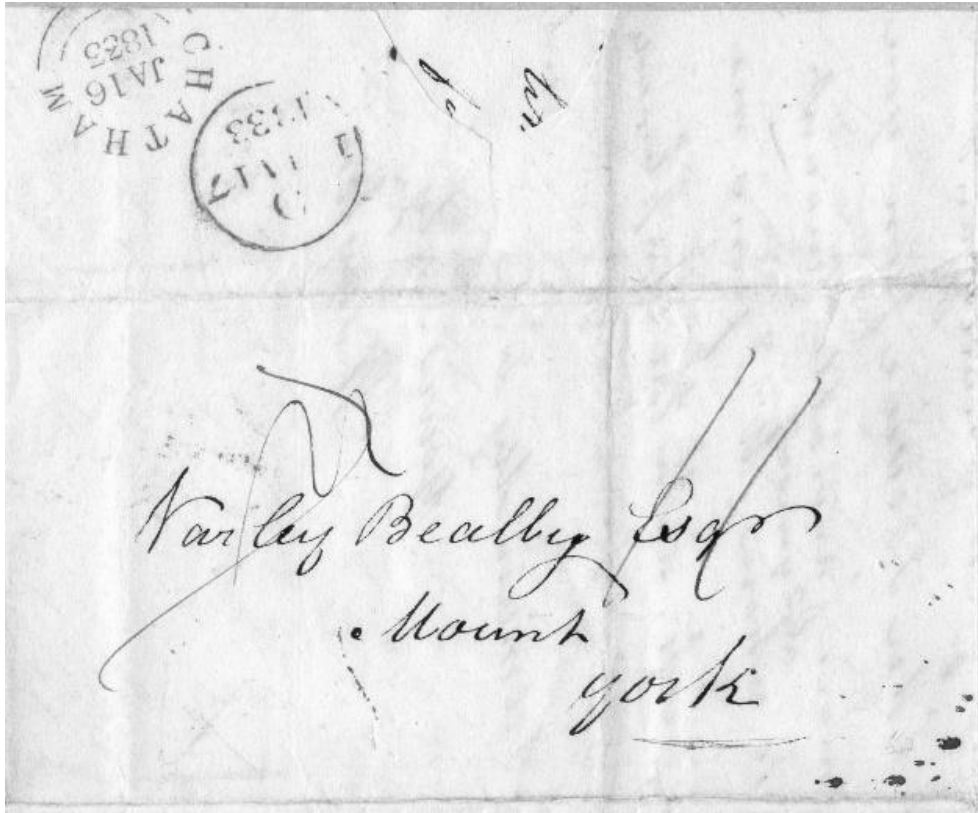 CHATHAM
JA 16
1833
JA 17
1833
Varley Bealby Esqr
Mount
york